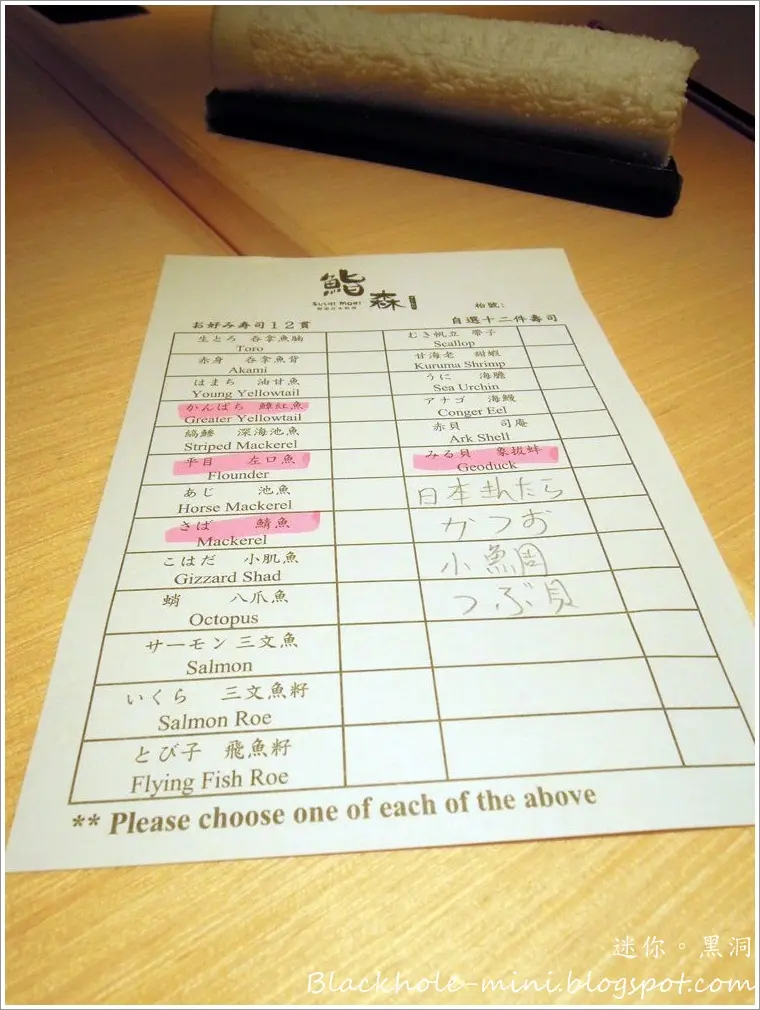 鮨
森
SUSHI MORI
枱號:
お好み寿司12貫
自選十二件壽司
生とろ 吞拿魚腩
Toro
赤身 吞拿魚背
Akami
はまち 油甘魚
Young Yellowtail
かんぱち 鰤紅魚
Greater Yellowtail
縞鯵 深海池魚
Striped Mackerel
平目 左口魚
Flounder
あじ 池魚
Horse Mackerel
さば 鯖魚
Mackerel
こはだ 小肌魚
Gizzard Shad
蛸 八爪魚
Octopus
サーモン 三文魚
Salmon
いくら 三文魚籽
Salmon Roe
とび子 飛魚籽
Flying Fish Roe
むき帆立 帶子
Scallop
甘海老 甜蝦
Kuruma Shrimp
うに 海膽
Sea Urchin
アナゴ 海鰻
Conger Eel
赤貝 司庵
Ark Shell
みる貝 象拔蚌
Geoduck
日本きんたら
かつお
小鯛
つぶ貝
** Please choose one of each of the above
迷你。黑洞
Blackhole-mini.blogspot.com